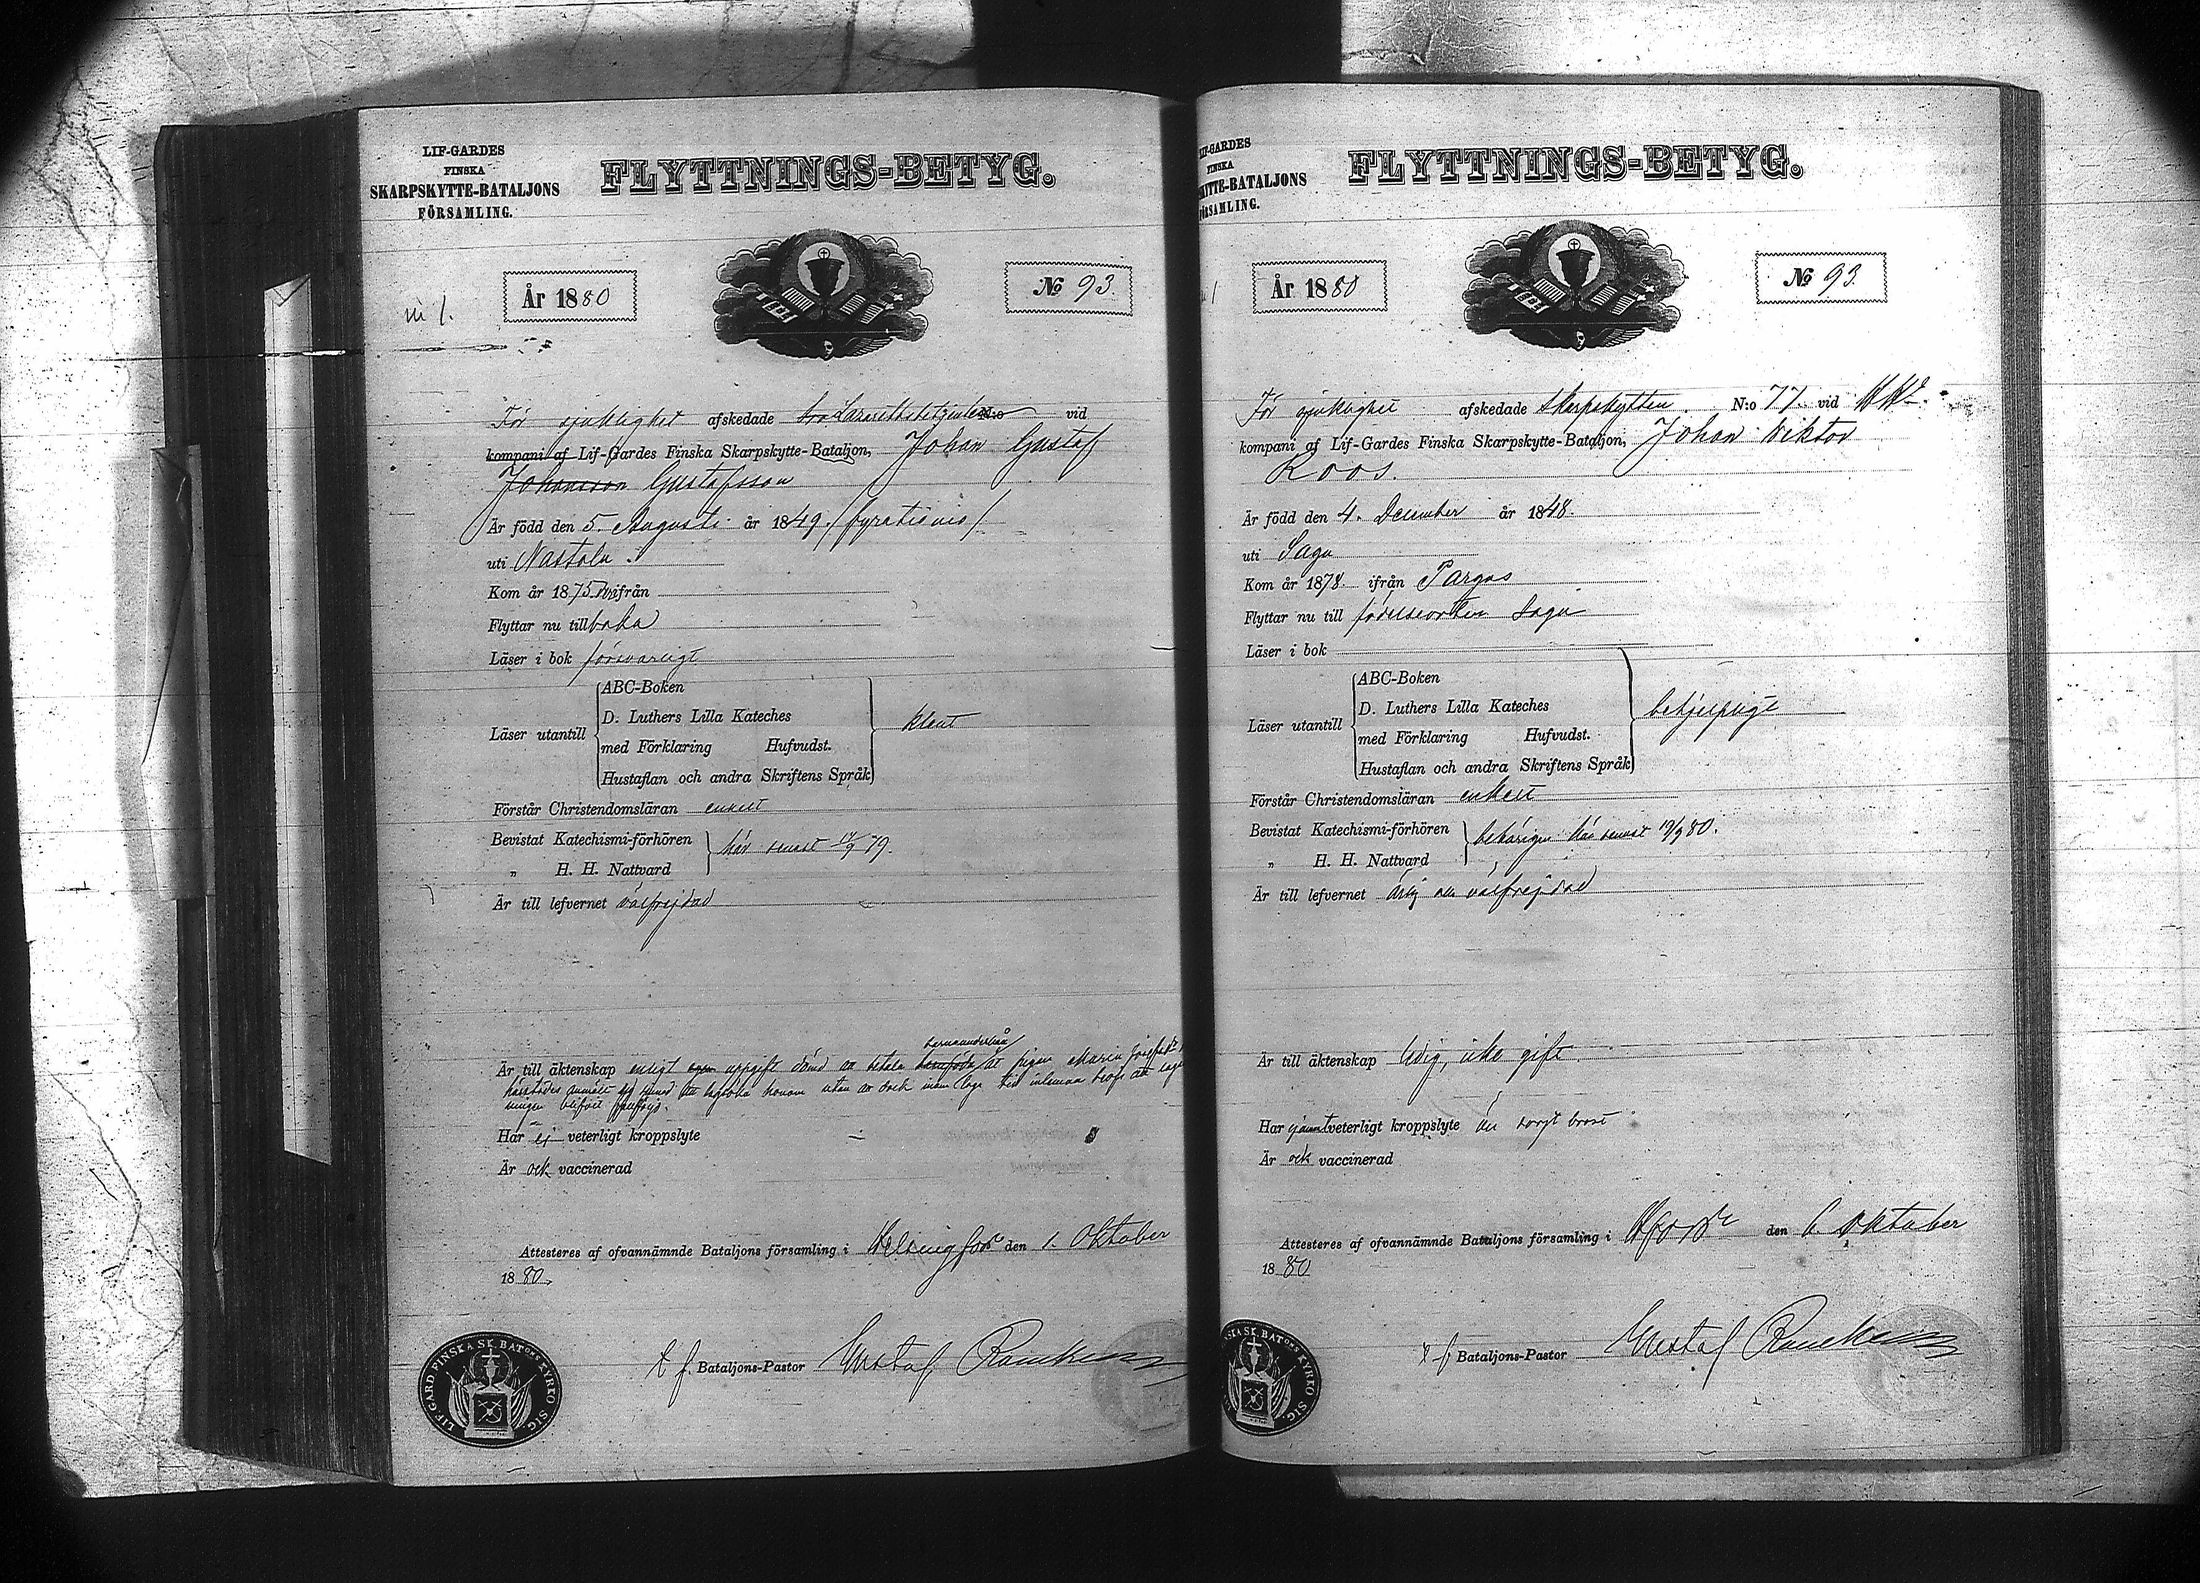 LIF-GARDES
FINSKA
SKARPSKYTTE-BATALJONS
FÖRSAMLING.
FLYTTNINGS-BETYG.
År 1880
№ 93.
För sjuklighet afskedade Lazarettsbetjenten N:o vid
kompani af Lif-Gardes Finska Skarpskytte-Bataljon, Johan Gustaf
Johansson Gustafsson
Är född den 5. Augusti år 1849. /fyrationio/
uti Nastola
Kom år 1875 ifrån
Flyttar nu till
Läser i bok försvarligt
Läser utantill
ABC-Boken
D. Luthers Lilla Kateches
med Förklaring Hufvudst.
Hustaflan och andra Skriftens Språk
klent
Förstår Christendomsläran enkelt
Bevistat Katechismi-förhören
„ H. H. Nattvard
här senast 14/9 79.
Är till lefvernet välfrejdad
barnunderhåll
Är till äktenskap enligt uppgift dömd att betala åt pigan Maria
Har ej veterligt kroppslyte
Är ock vaccinerad
Attesteres af ofvannämnde Bataljons församling i Helsingfors den 1. Oktober
1880.
t f. Bataljons-Pastor Gustaf
LIF-GARD FINSKA SK. BATONS KYRKO SIG.
LIF-GARDES
FINSKA
SKYTTE-BATALJONS
FÖRSAMLING.
FLYTTNINGS-BETYG.
År 1880
№ 93.
För sjuklighet afskedade Skarpskytten N:o 77. vid
kompani af Lif-Gardes Finska Skarpskytte-Bataljon, Johan Viktor
Roos.
Är född den 4. December år 1848.
uti Sagu
Kom år 1878. ifrån Pargas
Flyttar nu till födelseorten Sagu
Läser i bok
Läser utantill
ABC-Boken
D. Luthers Lilla Kateches
med Förklaring Hufvudst.
Hustaflan och andra Skriftens Språk
behjelpligt
Förstår Christendomsläran enkelt
Bevistat Katechismi-förhören
„ H. H. Nattvard
behörigen här senast 19/9 80.
Är till lefvernet ärlig och välfrejdad
Är till äktenskap ledig, icke gift
Har veterligt kroppslyte
Är ock vaccinerad
Attesteres af ofvannämnde Bataljons församling i H:fors den 6 Oktober
1880
t f. Bataljons-Pastor Gustaf
FINSKA SK. BATONS KYRKO SIG.